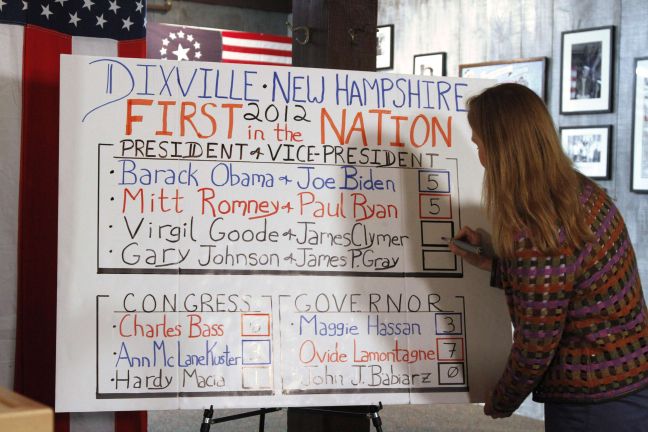 DIXVILLE · NEW HAMPSHIRE
FIRST 2012 in the NATION
PRESIDENT & VICE-PRESIDENT
· Barack Obama & Joe Biden 5
· Mitt Romney & Paul Ryan 5
· Virgil Goode & James Clymer
· Gary Johnson & James P. Gray
CONGRESS
· Charles Bass
· Ann McLane Kuster
· Hardy Macia 1
GOVERNOR
· Maggie Hassan 3
· Ovide Lamontagne 7
· John J. Babiarz 0